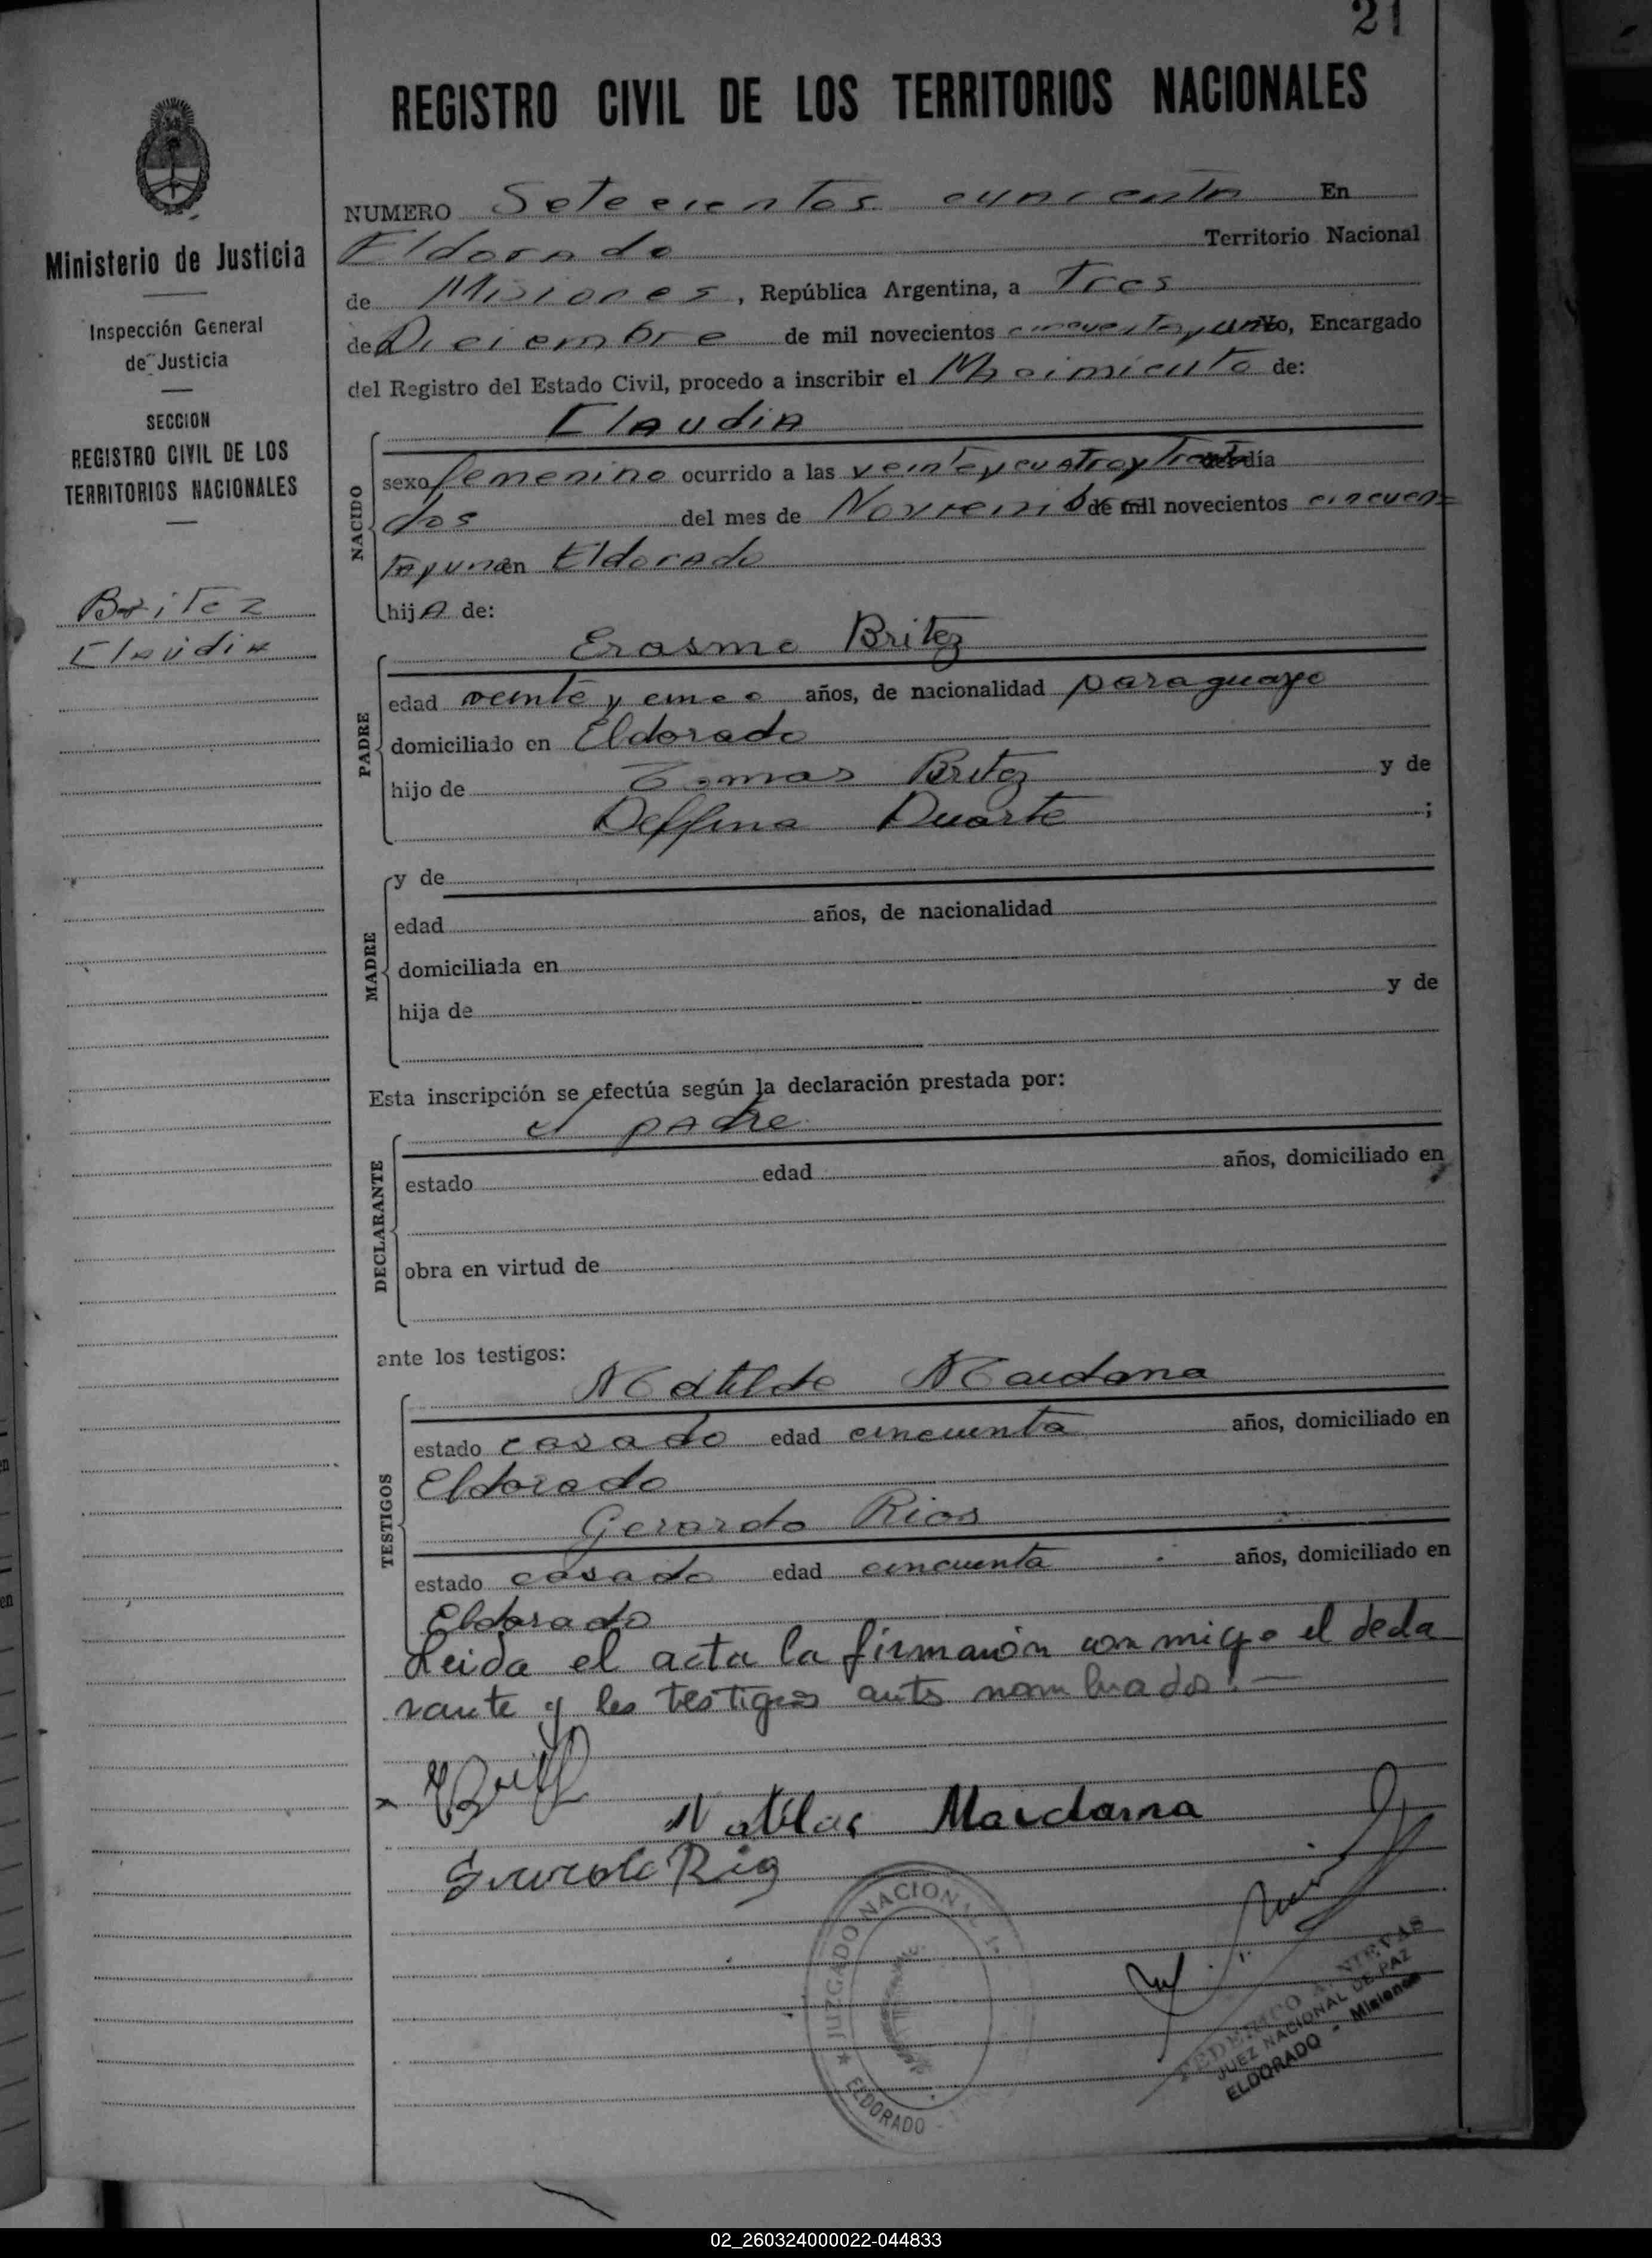 21
REGISTRO CIVIL DE LOS TERRITORIOS NACIONALES
Ministerio de Justicia
Inspección General
de Justicia
SECCION
REGISTRO CIVIL DE LOS
TERRITORIOS NACIONALES
Britez
Claudia
NUMERO Setecientos cuarenta En
Eldorado Territorio Nacional
de Misiones, República Argentina, a Tres
de Diciembre de mil novecientos cincuenta y uno Yo, Encargado
del Registro del Estado Civil, procedo a inscribir el Nacimiento de:
NACIDO
Claudia
sexo femenino ocurrido a las veinte y cuatro y Treinta del día
dos del mes de Noviembre de mil novecientos cincuen=
ta y uno en Eldorado
hijA de:
PADRE
Erasmo Britez
edad veinte y cinco años, de nacionalidad paraguayo
domiciliado en Eldorado
hijo de Tomas Britez y de
Delfina Duarte ;
MADRE
y de
edad años, de nacionalidad
domiciliada en
hija de y de
Esta inscripción se efectúa según la declaración prestada por:
DECLARANTE
el padre
estado edad años, domiciliado en
obra en virtud de
ante los testigos:
TESTIGOS
Matilde Maidana
estado casado edad cincuenta años, domiciliado en
Eldorado
Gerardo Rios
estado casado edad cincuenta años, domiciliado en
Eldorado
Leida el acta la firmaron conmigo el decla
rante y los testigos antes nombrados.—
Maidana
JUZGADO NACIONAL
ELDORADO
JUEZ NACIONAL DE PAZ
ELDORADO - Misiones
02_260324000022-044833